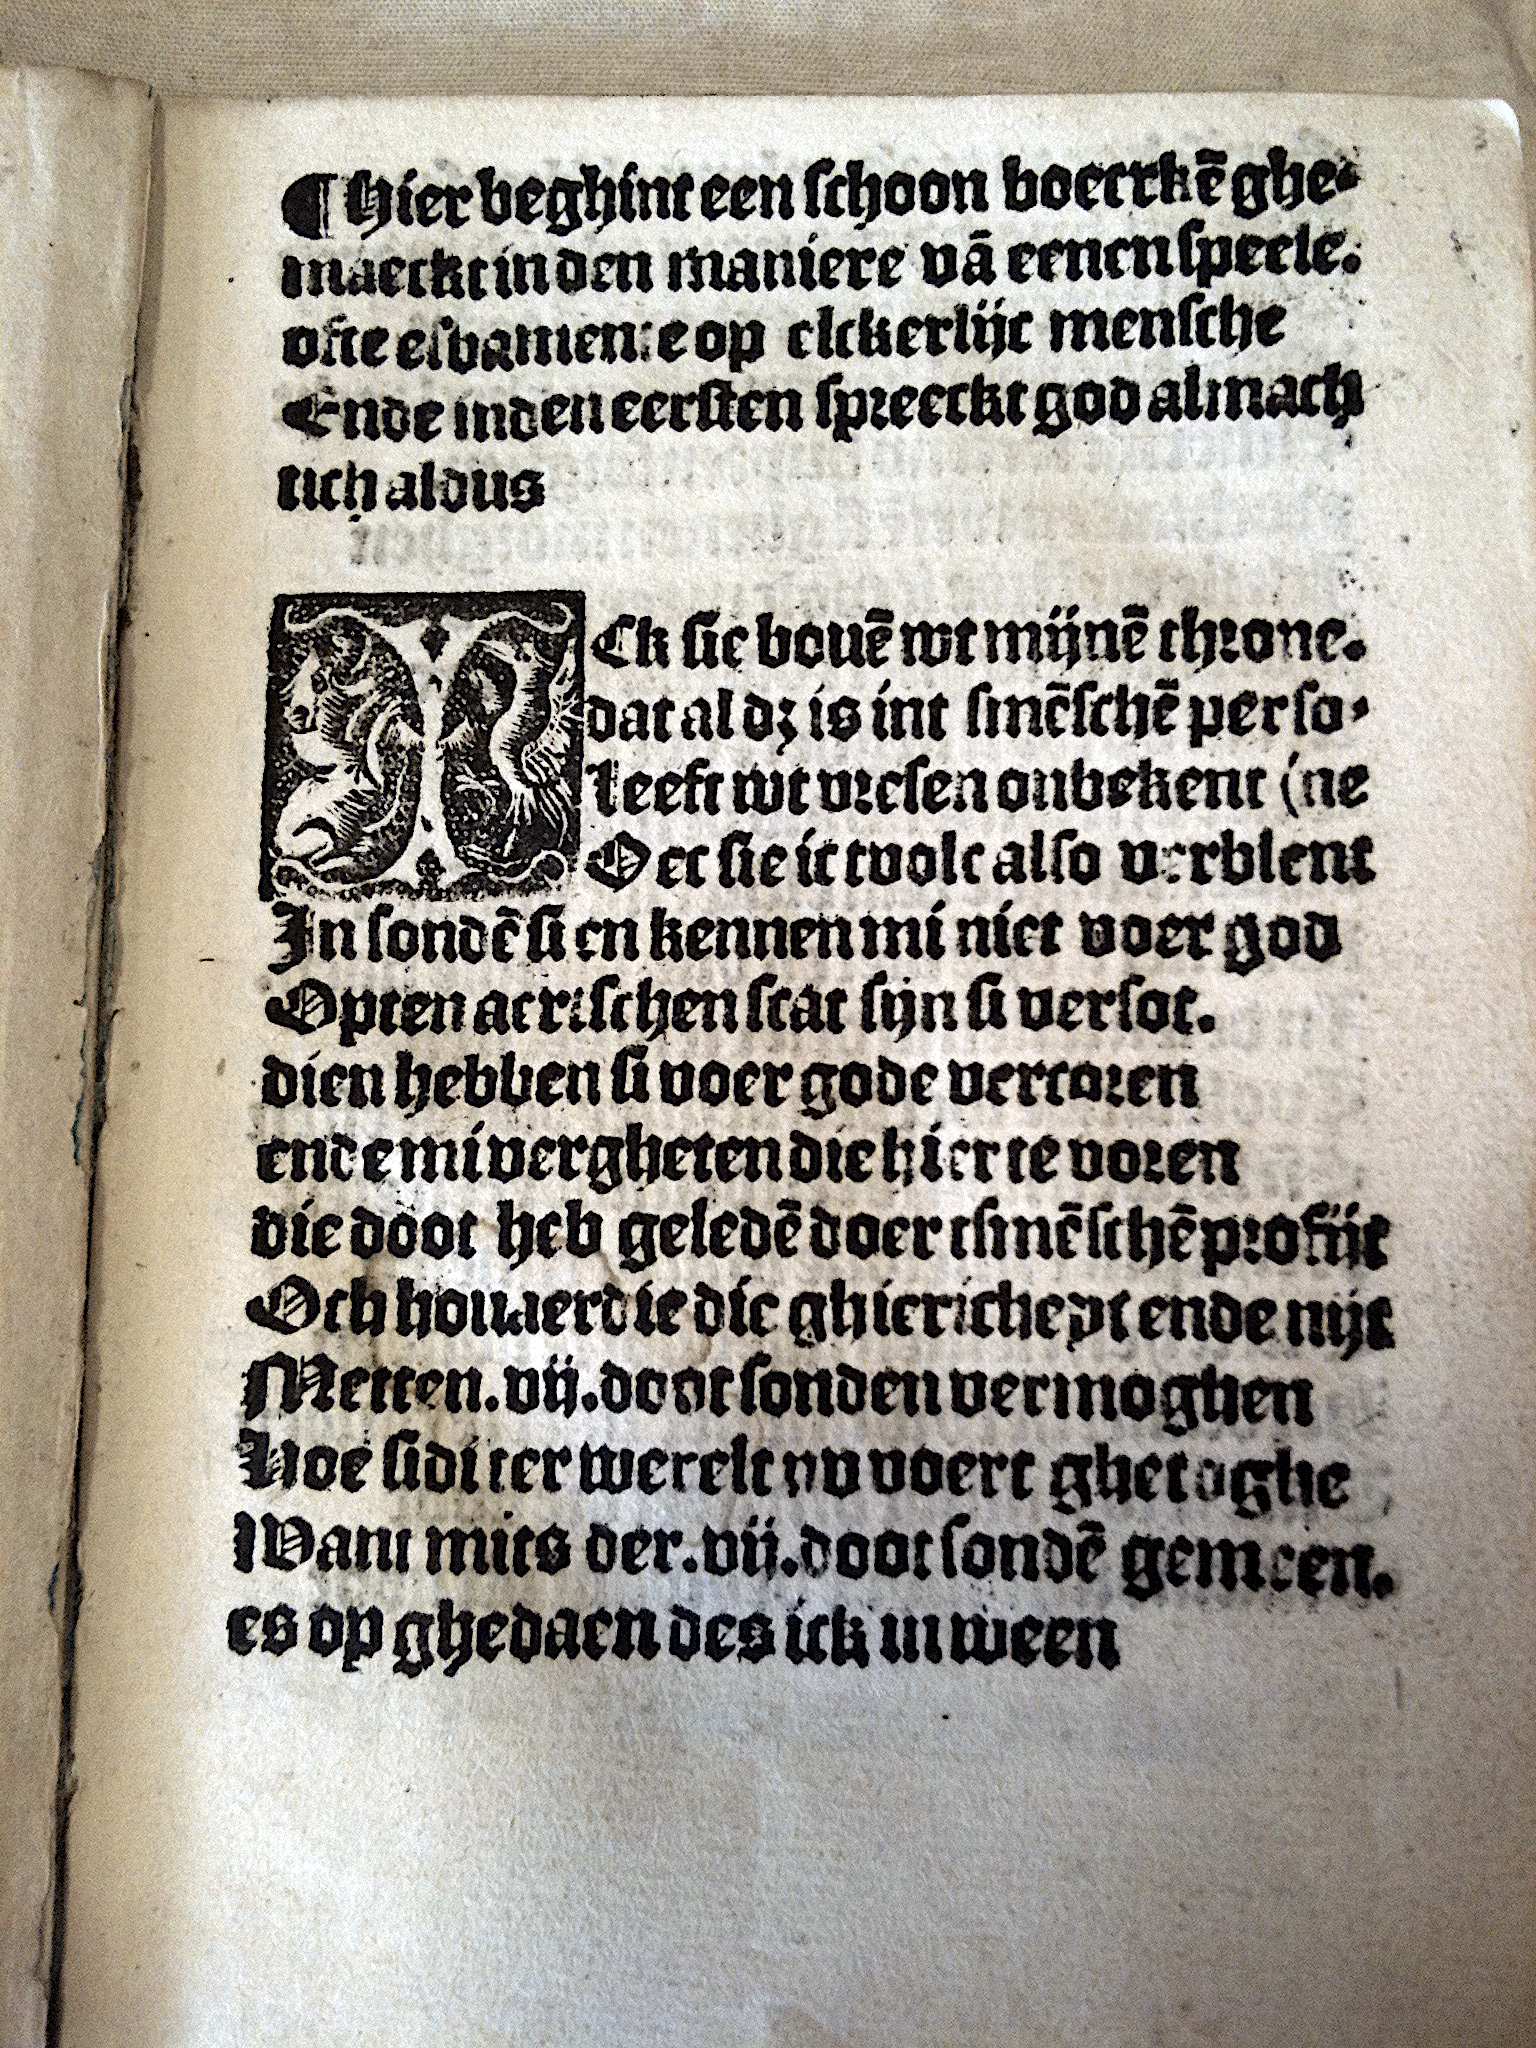 ¶ Hier beghint een schoon boecrkē ghe-
maeckt in den maniere vā eenen speele.
ofte esbamente op elckerlijc mensche
Ende inden eersten spreeckt god almach
tich aldus
ICk sie bouē wt mijnē throne.
dat al dz is int smēschē perso-
leeft wt vresen onbekent (ne
Oec sie ic tvolc also verblent
In sondē si en kennen mi niet voer god
Opten aertschen scat sijn si versot.
dien hebben si voer gode vercoren
ende mi vergheten die hier te voren
die doot heb geledē doer tsmēschē profijt
Och houuerdie die ghiericheyt ende nijt
Metten .vij. doot sonden vermoghen
Hoe sidi ter werelt nv voert ghetoghe
Want mits der .vij. doot sondē gemeen.
es op ghedaen des ick in ween